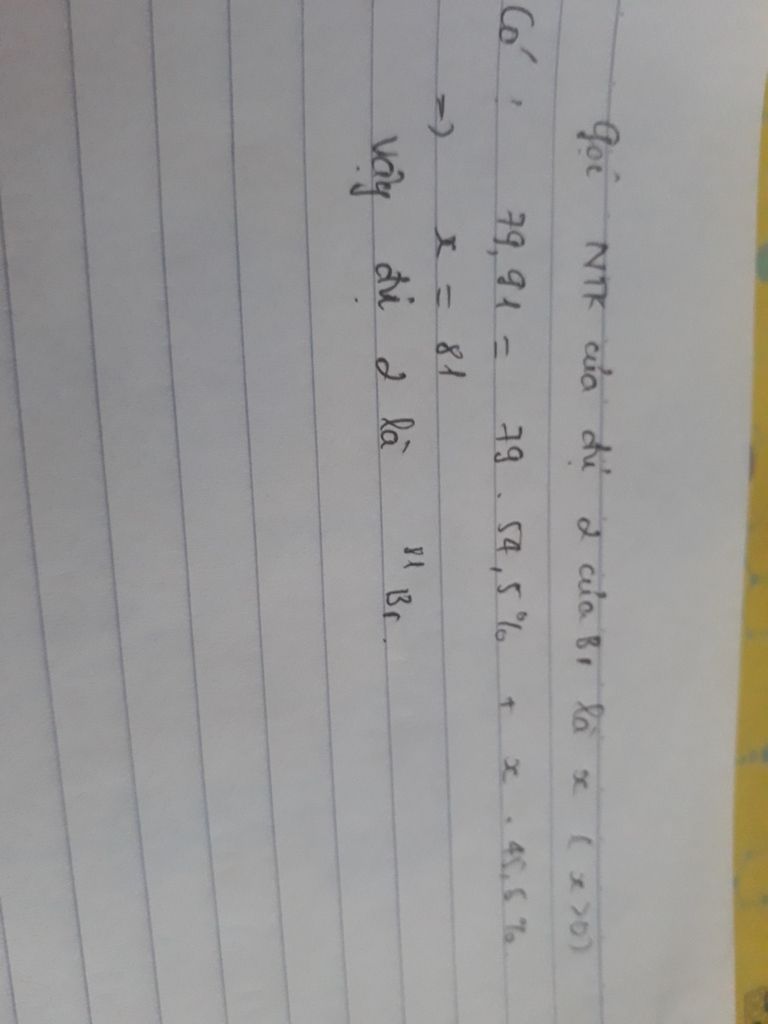 Gọi NTK của đv 2 của Br là x (x>0)
Có, 79,91 = 79 . 54,5% + x . 45,5%
=) x = 81
Vậy đv 2 là ⁸¹Br.